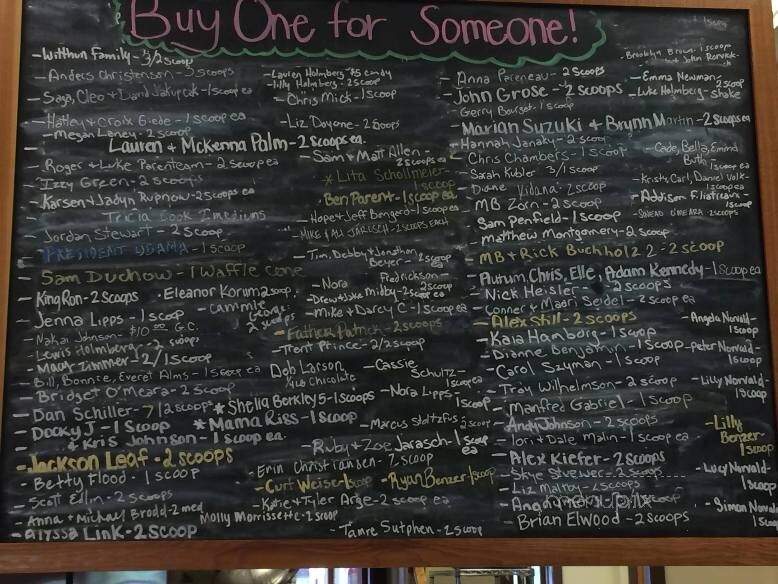 Buy One for Someone!
- Witthun Family - 3/2 scoop
- Anders Christenson - 3 scoops
- Saga, Cleo + David Jakupcak - 1 scoop ea
- Hatley + Croix Giede - 1 scoop ea
- Megan Laney - 2 scoop
Lauren + McKenna Palm - 2 scoops ea.
- Roger + Luke Parenteam - 2 scoop ea
- Izzy Green - 2 scoops
- Karsen + Jadyn Rupnow - 2 scoops ea
- Tricia Cook 1 medium
- Jordan Stewart - 2 Scoop
- PRESIDENT OBAMA - 1 SCOOP
- Sam Duchow - 1 Waffle cone
- King Ron - 2 scoops
- Eleanor Korum 2 scoop
- Jenna Lipps - 1 scoop
- cammie
George 2 scoops
- Nakai Johnson - $10.00 G.C.
- Lewis Holmberg - 2 scoops
- Macy Zimmer - 2/1 scoop
- Bill, Bonnie, Everet Alms - 1 scoop ea
- Bridget O'Meara - 2 scoop
- Dan Schiller - 7/2 scoops
* Shelia Berkley 5 - 1 Scoops
- Docky J - 1 Scoop
* Mama Riss - 1 Scoop
& Kris Johnson - 1 scoop ea.
- Jackson Leaf - 2 scoops
- Betty Flood - 1 scoop
- Scott Edlin - 2 Scoops
- Anna + Michael Brodd - 2 med
Molly Morrissette - 2 scoop
- Alyssa Link - 2 scoop
- Lauren Holmberg $5 candy
- Lilly Holmberg - 2 scoop
- Chris Mick - 1 Scoop
- Liz Doyone - 2 Scoops
- Sam + Matt Allen - 2 scoops ea
* Lita Schollmeier - 1 scoop
Ben Parent - 1 scoop ea
- Hope + Jeff Bengero - 1 scoop ea
- MIKE & ALI JARUSCH - 2 SCOOPS EACH
- Tim, Debby + Jonathan Beyer - 2 scoop ea
- Nora Fredrickson
- Drew + Luke Midby - 2 scoop ea
- Mike + Darcy C - 1 Scoop ea
- Father Patrick - 2 scoops
- Trent Prince - 2/2 scoop
Dob Larson, 1/4 lb chocolate
- Cassie Schultz - 1 scoop ea
- Nora Lipps - 1 scoop
- Marcus Stoltzfus - 2 scoop
- Ruby + Zoe Jarasch - 1 scoop ea
- Erin Christiansen - 2 scoop
- Curt Weiser 1 scoop
- Ryan Benzer - 1 scoop
- Katie + Tyler Arge - 2 scoop ea
- Tamre Sutphen - 2 scoop
- Anna Parenteau - 2 scoops
- John Grose - 2 scoops
- Gerry Bourget - 1 scoop
- Marian Suzuki + Brynn Martin - 2 scoops ea
- Hannah Janaky - 2 scoop
- Chris Chambers - 1 scoop
- Sarah Kubler 3/1 scoop
- Diane Vidana - 2 scoop
- MB Zorn - 2 scoop
- Sam Penfield - 1 scoop
- Matthew Montgomery - 2 scoop
- MB + Rick Buchholz 2 - 2 scoop
- Autum, Chris, Elle, Adam Kennedy - 1 scoop ea
- Nick Heisler - 2 scoops
- Conner & Maari Seidel - 2 scoop ea
- Alex Still - 2 scoops
- Kaia Hamborg - 1 scoop
- Dianne Benjamin - 1 Scoop
- Carol Szyman - 1 Scoop
- Troy Wilhelmson - 2 scoop
- Manfred Gabriel - 1 Scoop
- Andy Johnson - 2 scoops
- Tori + Dale Malin - 1 scoop ea
- Alex Kiefer - 2 scoops
- Skye Stuewer - 2 scoops
- Liz Maltby - 2 scoops
- Brian Elwood - 2 scoops
- Brooklyn Brown 1 scoop
- Emma Newman, 2 scoop
- Luke Holmberg - shake
- Cade, Bella, Emma Buth, 1 scoop ea
- Krista, Carl, Daniel Volk - 1 scoop ea
- SINEAD O'MEARA 2 SCOOPS
- Angela Norvald - 1 Scoop
- Peter Norvald - 1 scoop
- Lilly Norvald - 1 scoop
- Lilly Benzer - 1 scoop
- Lucy Norvald - 1 scoop
- Simon Norvald 1 scoop